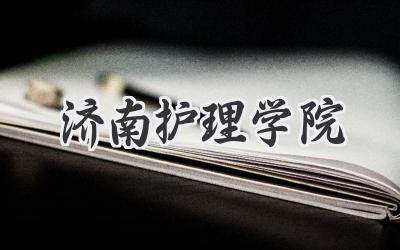 济南护理学院